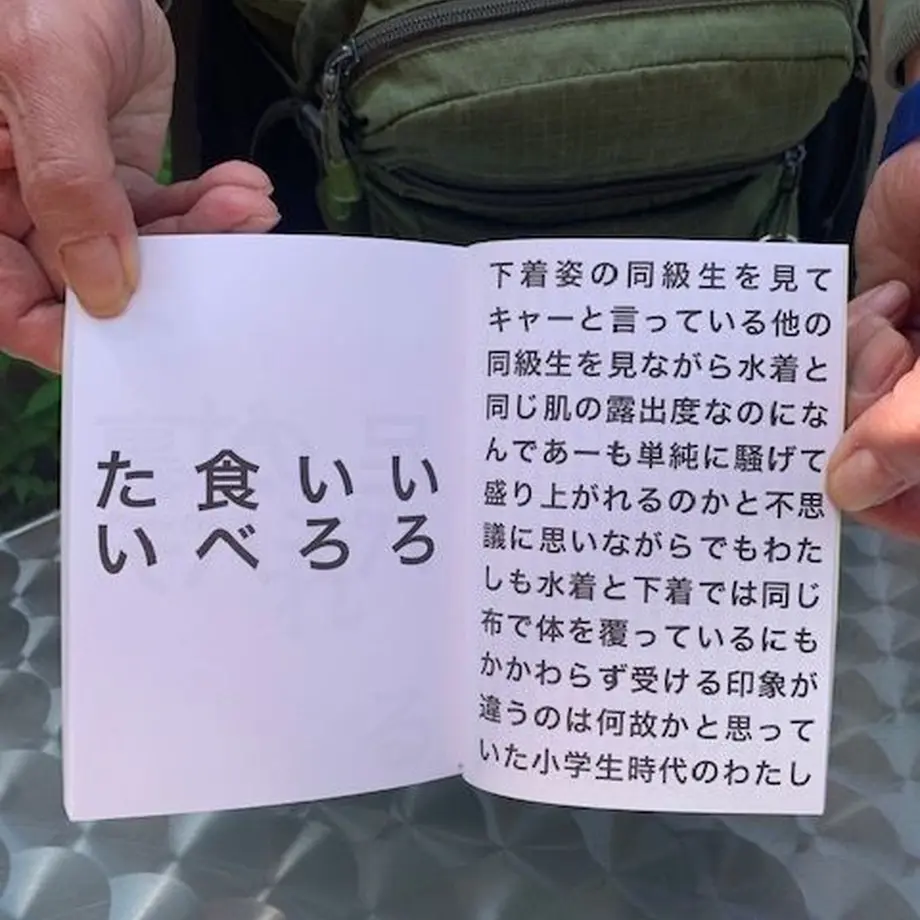 いろ
いろ
食べ
たい
下着姿の同級生を見て
キャーと言っている他の
同級生を見ながら水着と
同じ肌の露出度なのにな
んであーも単純に騒げて
盛り上がれるのかと不思
議に思いながらでもわた
しも水着と下着では同じ
布で体を覆っているにも
かかわらず受ける印象が
違うのは何故かと思って
いた小学生時代のわたし